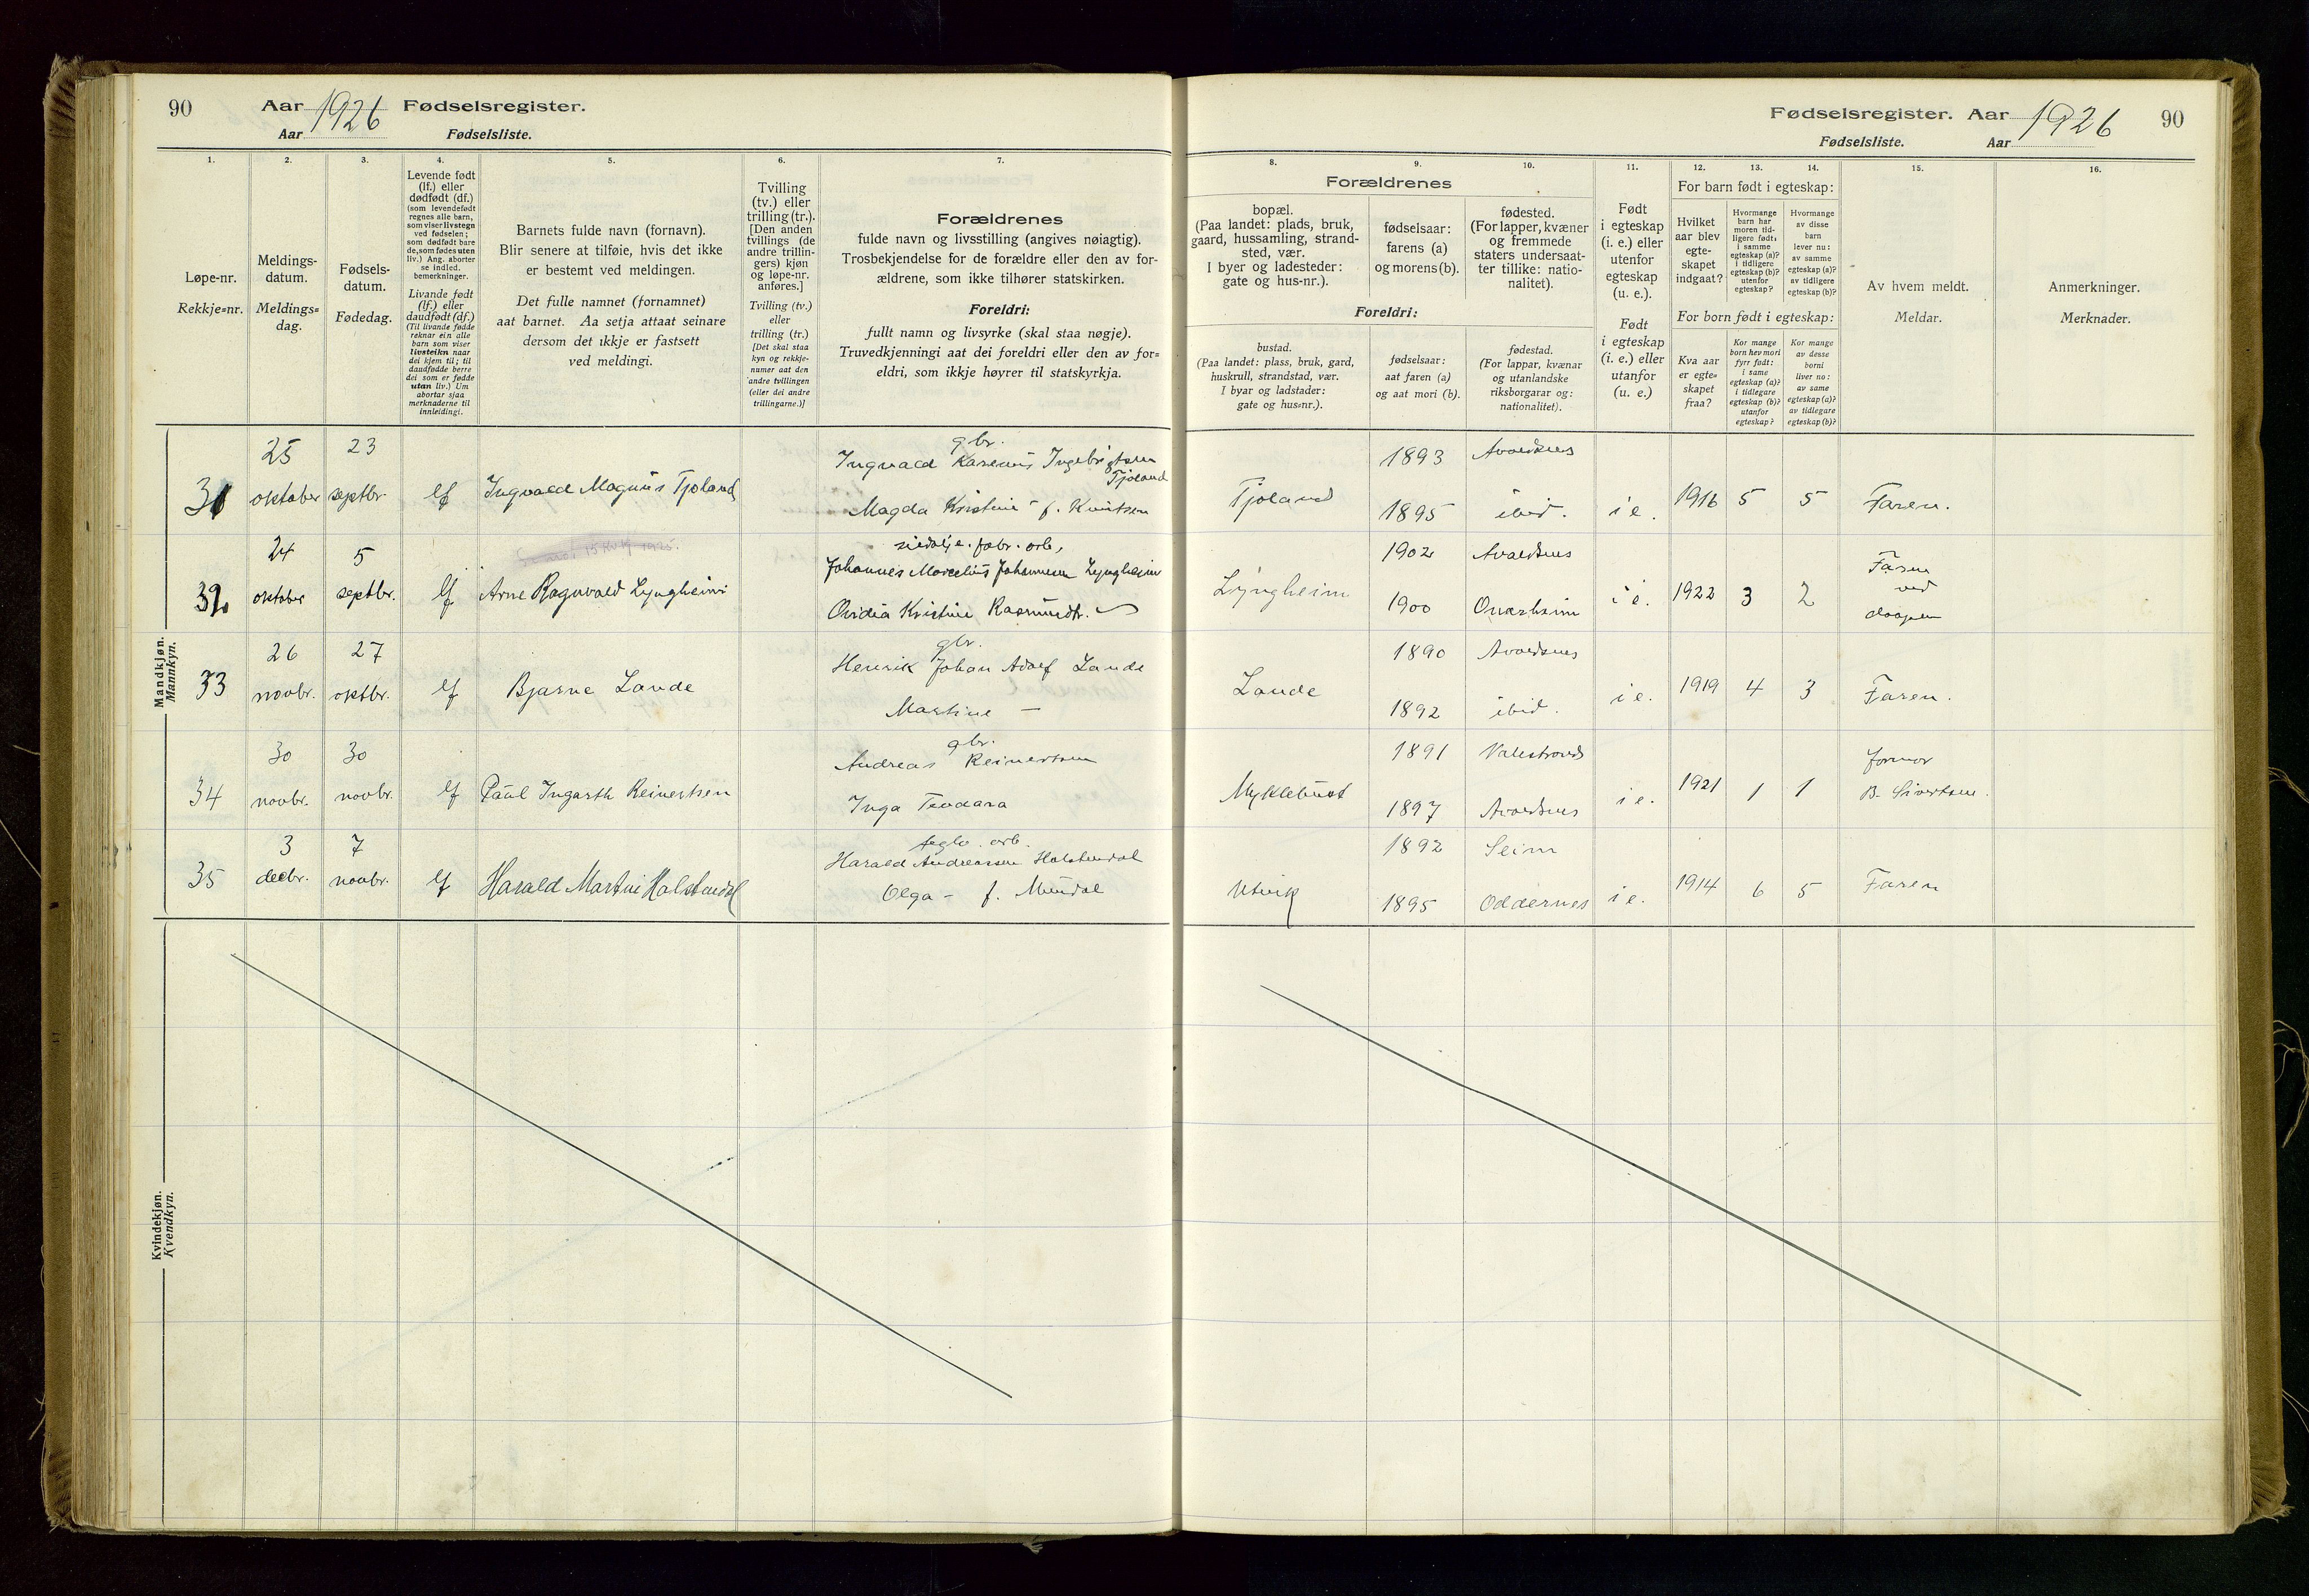 90 Aar 1926 Fødselsregister.
Aar Fødselsliste.
1. 2. 3. 4. 5. 6. 7.
Løpe-nr.
Rekkje=nr.
Meldings-
datum.
Meldings=
dag.
Fødsels-
datum.
Fødedag.
Levende født
(lf.) eller
dødfødt (df.)
(som levendefødt
regnes alle barn,
som viser livstegn
ved fødselen;
som dødfødt bare
de, som fødes uten
liv.) Ang. aborter
se indled.
bemerkninger.
Livande født
(lf.) eller
daudfødt (df.)
(Til livande fødde
reknar ein alle
barn som viser
livsteikn naar
dei kjem til; til
daudfødde berre
dei som er fødde
utan liv.) Um
abortar sjaa
merknaderne til
innleidingi.
Barnets fulde navn (fornavn).
Blir senere at tilføie, hvis det ikke
er bestemt ved meldingen.
Det fulle namnet (fornamnet)
aat barnet. Aa setja attaat seinare
dersom det ikkje er fastsett
ved meldingi.
Tvilling
(tv.) eller
trilling (tr.).
[Den anden
tvillings (de
andre trillin-
gers) kjøn
og løpe-nr.
anføres.]
Tvilling (tv.)
eller
trilling (tr.)
[Det skal staa
kyn og rekkje-
numer aat den
andre tvillingen
(eller dei andre
trillingarne.)]
Forældrenes
fulde navn og livsstilling (angives nøiagtig).
Trosbekjendelse for de forældre eller den av for-
ældrene, som ikke tilhører statskirken.
Foreldri:
fullt namn og livsyrke (skal staa nøgje).
Truvedkjenningi aat dei foreldri eller den av for=
eldri, som ikkje høyrer til statskyrkja.
Mandkjøn.
Mannkyn.
31 25 oktober 23 septbr. lf Ingvald Magnus Tjoland
gbr.
Ingvald Karenius Ingebrigtsen
Tjoland
Magda Kristine - f. Knutsen
32 24 oktober 5 septbr. lf Arne Ragnvald Lyngheim
fabr. arb.
Johannes Marcelius Johannesen Lyngheim
Ovidia Kristine Rasmusdtr.
33 26 novbr. 27 oktbr. lf Bjarne Lande
gbr.
Henrik Johan Adolf Lande
Martine —
34 30 novbr. 30 novbr. lf Paul Ingarth Reinertsen
gbr.
Andreas Reinertsen
Inga Teodara
35 3 decbr. 7 novbr. lf Harald Martin Holstendal
arb.
Harald Andreassen Holstendal
Olga - f. Mundal
Kvindekjøn.
Kvendkyn.
Fødselsregister. Aar 1926 90
Fødselsliste. Aar
8. 9. 10. 11. 12. 13. 14. 15. 16.
Forældrenes
bopæl.
(Paa landet: plads, bruk,
gaard, hussamling, strand-
sted, vær.
I byer og ladesteder:
gate og hus-nr.).
fødselsaar:
farens (a)
og morens (b).
fødested.
(For lapper, kvæner
og fremmede
staters undersaat-
ter tillike: natio-
nalitet).
Foreldri:
bustad.
(Paa landet: plass, bruk, gard,
huskrull, strandstad, vær.
I byar og ladstader:
gate og hus=nr.).
fødselsaar:
aat faren (a)
og aat mori (b).
fødestad.
(For lappar, kvænar
og utanlandske
riksborgarar og:
nationalitet).
Født
i egteskap
(i. e.) eller
utenfor
egteskap
(u. e.).
Født
i egteskap
(i. e.) eller
utanfor
(u. e.)
For barn født i egteskap:
Hvilket
aar blev
egte-
skapet
indgaat?
Hvormange
barn har
moren tid-
ligere født:
i samme
egteskap (a)?
i tidligere
egteskap (b)?
utenfor
egteskap?
Hvormange
av disse
barn
lever nu:
av samme
egteskap (a)?
av tidligere
egteskap (b)?
For born født i egteskap:
Kva aar
er egte=
skapet
fraa?
Kor mange
born hev mori
fyrr født:
i same
egteskap (a)?
i tidlegare
egteskap (b)?
utanfor
egteskap?
Kor mange
av desse
borni
liver no:
av same
egteskap (a)?
av tidlegare
egteskap (b)?
Av hvem meldt.
Meldar.
Anmerkninger.
Merknader.
Tjoland 1893 Avaldsnes
1895 ibid. i e. 1916 5 5 Faren.
Lyngheim 1902 Avaldsnes
1900 Onarheim i e. 1922 3 2 Faren
ved
daapen
Lande 1890 Avaldsnes
1892 ibid. i e. 1919 4 3 Faren.
Myklebust 1891 Valestrand
1897 Avaldsnes i e. 1921 1 1 formor
B. Sivertsen.
Utvik 1892 Seim
1895 Oddernes i e. 1914 6 5 Faren